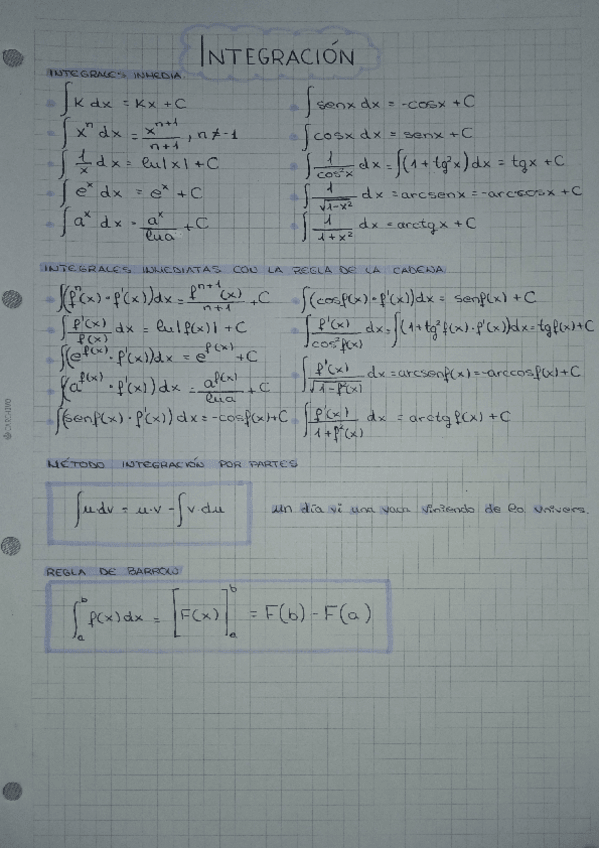 INTEGRACIÓN
INTEGRALES INMEDIA.
∫ K dx = Kx + C
∫ x^n dx = x^(n+1)/(n+1), n ≠ -1
∫ 1/x dx = ln|x| + C
∫ e^x dx = e^x + C
∫ a^x dx = a^x/lna + C
∫ senx dx = -cosx + C
∫ cosx dx = senx + C
∫ 1/cos²x dx = ∫(1 + tg²x) dx = tgx + C
∫ 1/√(1-x²) dx = arcsenx = -arccosx + C
∫ 1/(1+x²) dx = arctgx + C
INTEGRALES INMEDIATAS CON LA REGLA DE LA CADENA
∫(f^n(x) · f'(x))dx = f^(n+1)(x)/(n+1) + C
∫ f'(x)/f(x) dx = ln|f(x)| + C
∫(e^f(x) · f'(x))dx = e^f(x) + C
∫(a^f(x) · f'(x))dx = a^f(x)/lna + C
∫(senf(x) · f'(x))dx = -cosf(x) + C
∫(cosf(x) · f'(x))dx = senf(x) + C
∫ f'(x)/cos²f(x) dx = ∫(1 + tg²f(x) · f'(x))dx = tgf(x) + C
∫ f'(x)/√(1-f²(x)) dx = arcsenf(x) = -arccosf(x) + C
∫ f'(x)/(1+f²(x)) dx = arctgf(x) + C
MÉTODO INTEGRACIÓN POR PARTES
∫ u·dv = u·v - ∫ v·du
un día vi una vaca viniendo de la univers.
REGLA DE BARROW
∫_a^b f(x) dx = [F(x)]_a^b = F(b) - F(a)